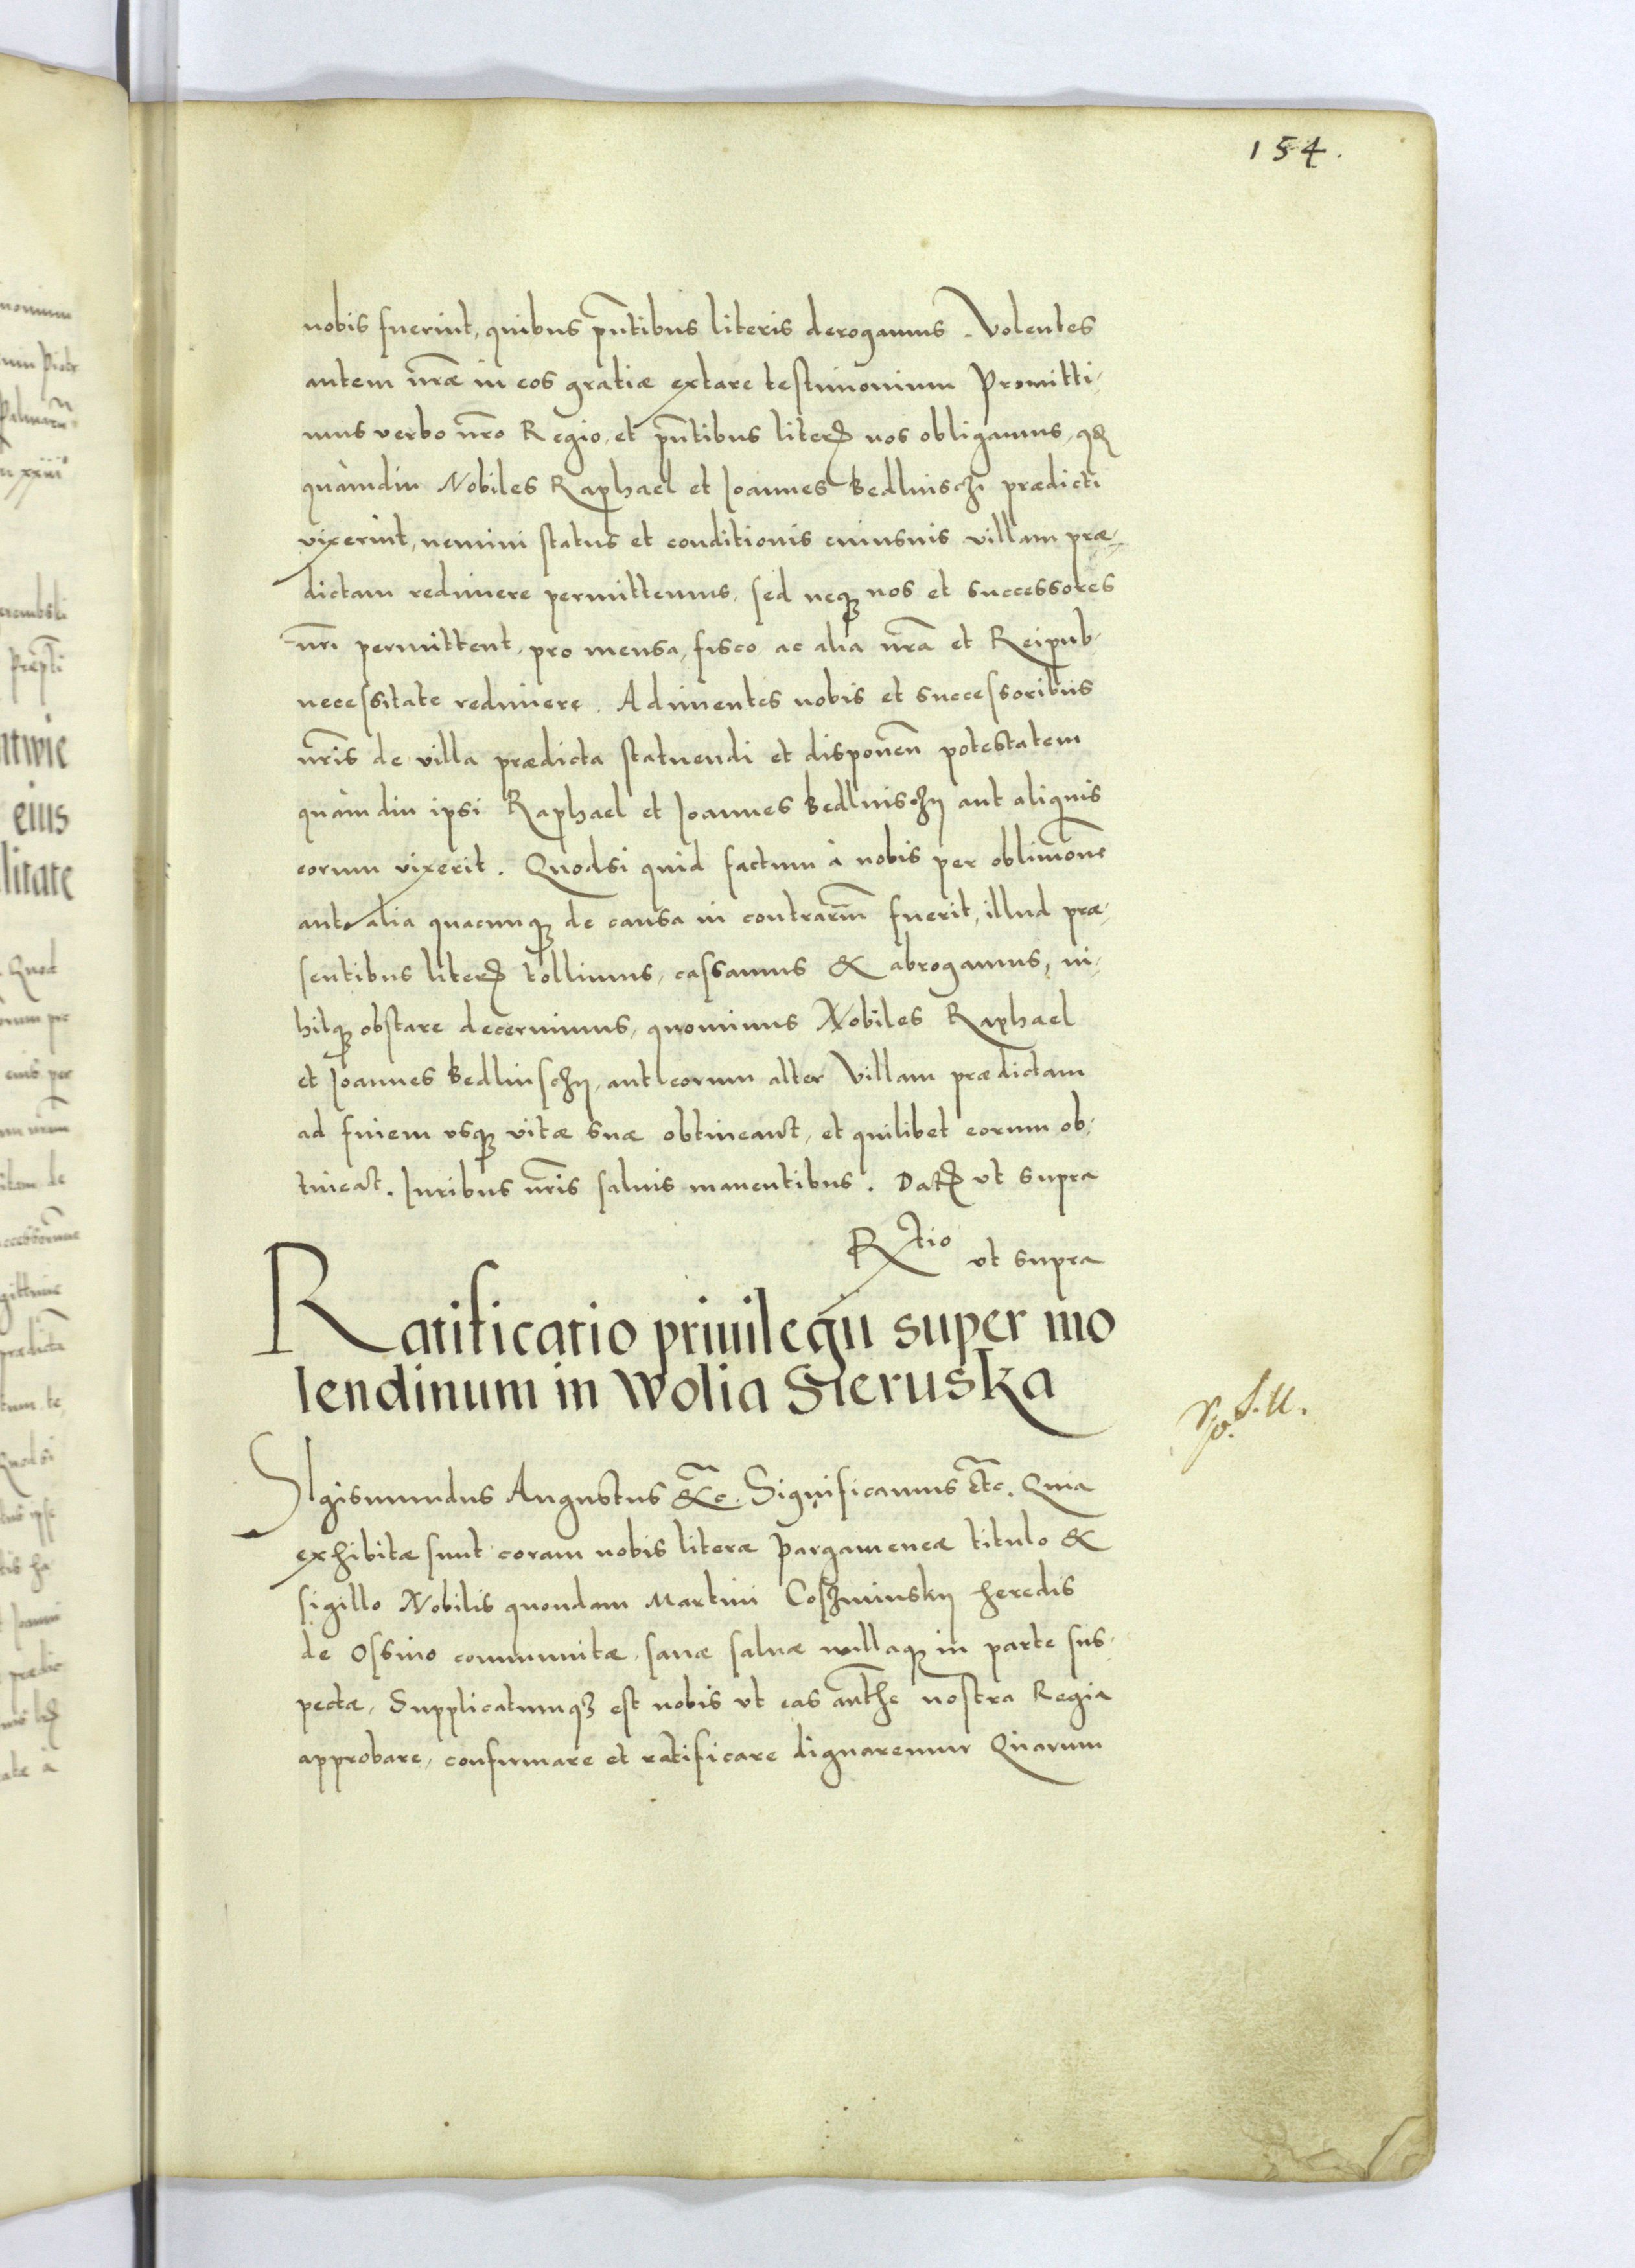 154.
nobis fuerint, quibus pñtibus literis derogamus. Volentes
autem nr̃æ in eos gratiæ extare testimonium Promitti-
mus verbo nr̃o Regio, et pñtibus liter[is] nos obligamus, q[uod]
quàmdiu Nobiles Raphael et Joannes Bedlnischi prædicti
vixerint, nemini status et conditionis cuiusuis villam præ-
dictam redimere permittemus, sed neq[ue] nos et successores
nr̃i permittent, pro mensa, fisco ac alia nr̃a et Reipub.
necessitate redimere. Adimentes nobis et successoribus
nr̃is de villa prædicta statuendi et disponen̄ potestatem
quàmdiu ipsi Raphael et Joannes Bedlnischÿ aut aliquis
eorum vixerit. Quodsi quid factum à nobis per obliuionē
aut alia quacunq[ue] de causa in contrariū fuerit, illud præ-
sentibus liter[is] tollimus, cassamus & abrogamus, ni-
hilq[ue] obstare decernimus, quominus Nobiles Raphael
et Joannes Bedlinschÿ, aut eorum alter Villam prædictam
ad finem vsq[ue] vitæ suæ obtineant, et quilibet eorum ob-
tineat. Juribus nr̃is saluis manentibus. Dat[um] vt supra
Rtio vt supra
Ratificatio priuilegii super mo
lendinum in Wolia Sieruska
SIgismundus Augustus &c̃. Significamus et̃c. Quia
exhibitæ sunt coram nobis literæ pargameneæ titulo &
sigillo Nobilis quondam Martini Coszminskÿ heredis
de Ossino communitæ, sanæ saluæ nullaq[ue] in parte sus-
pectæ, Supplicatumq[ue] est nobis vt eas autħe nostra Regia
approbare, confirmare et ratificare dignaremur Quarum